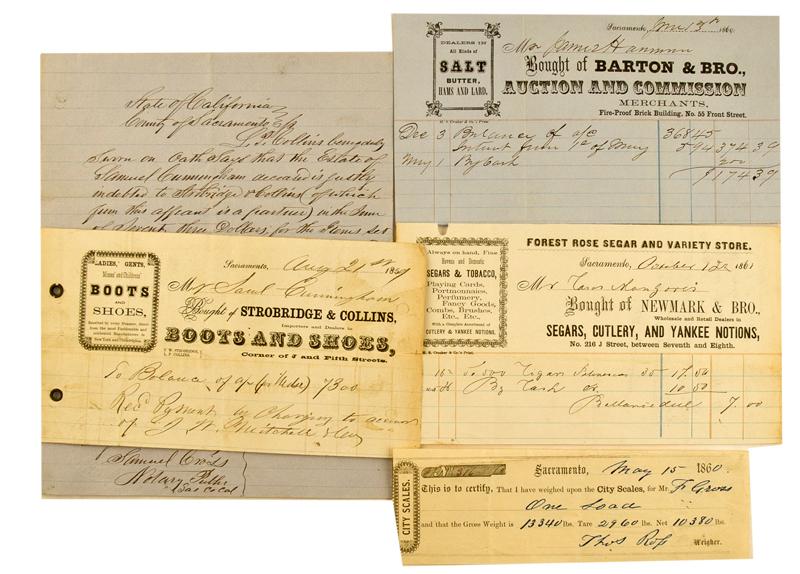 State of California
County of Sacramento
L. P. Collins being duly
Sworn on Oath Says that the Estate of
Samuel Cunningham deceased is justly
indebted to Strobridge & Collins (of which
firm this affiant is a partner) in the Sum
of Seventy three Dollars, for the
Samuel Cross
Notary Public
Sac Co Cal
DEALERS IN
All Kinds of
SALT
BUTTER,
HAMS AND LARD.
Sacramento, June 13th 1860.
Mr James Hanmon
Bought of BARTON & BRO.,
AUCTION AND COMMISSION
MERCHANTS,
Fire-Proof Brick Building, No. 55 Front Street.
H. S. Crocker & Co's Print.
Dec 3 Balance of a/c 368 45
Interest from 1st of May 5 94 374 39
May 1 By Cash 200
$174 39
LADIES', GENTS,
Misses' and Childrens'
BOOTS
AND
SHOES,
Sacramento, Aug 21st 1860
Mr Saml Cunningham
Bought of STROBRIDGE & COLLINS,
Importers and Dealers in
BOOTS AND SHOES,
Corner of J and Fifth Streets.
T. W. STROBRIDGE,
L. P. COLLINS.
To Balance of a/c (per Order) 73 00
Recd Payment by Charging to account
of J. W. Mitchell
Always on hand, Fine
Havana and Domestic
SEGARS & TOBACCO,
Playing Cards,
Portmonnaies,
Perfumery,
Fancy Goods,
Combs, Brushes,
Etc., Etc.,
With a Complete Assortment of
CUTLERY & YANKEE NOTIONS.
H. S. Crocker & Co's Print.
FOREST ROSE SEGAR AND VARIETY STORE.
Sacramento, October 12 1861
Mr
Bought of NEWMARK & BRO.,
Wholesale and Retail Dealers in
SEGARS, CUTLERY, AND YANKEE NOTIONS,
No. 216 J Street, between Seventh and Eighth.
To 500 Cigars 35 17.50
By Cash 10.50
7.00
CITY SCALES.
Sacramento, May 15 1860.
This is to certify, That I have weighed upon the City Scales, for Mr. F Gross
One Load
and that the Gross Weight is 13340 lbs. Tare 2960 lbs. Net 10380 lbs.
Thos Ross Weigher.